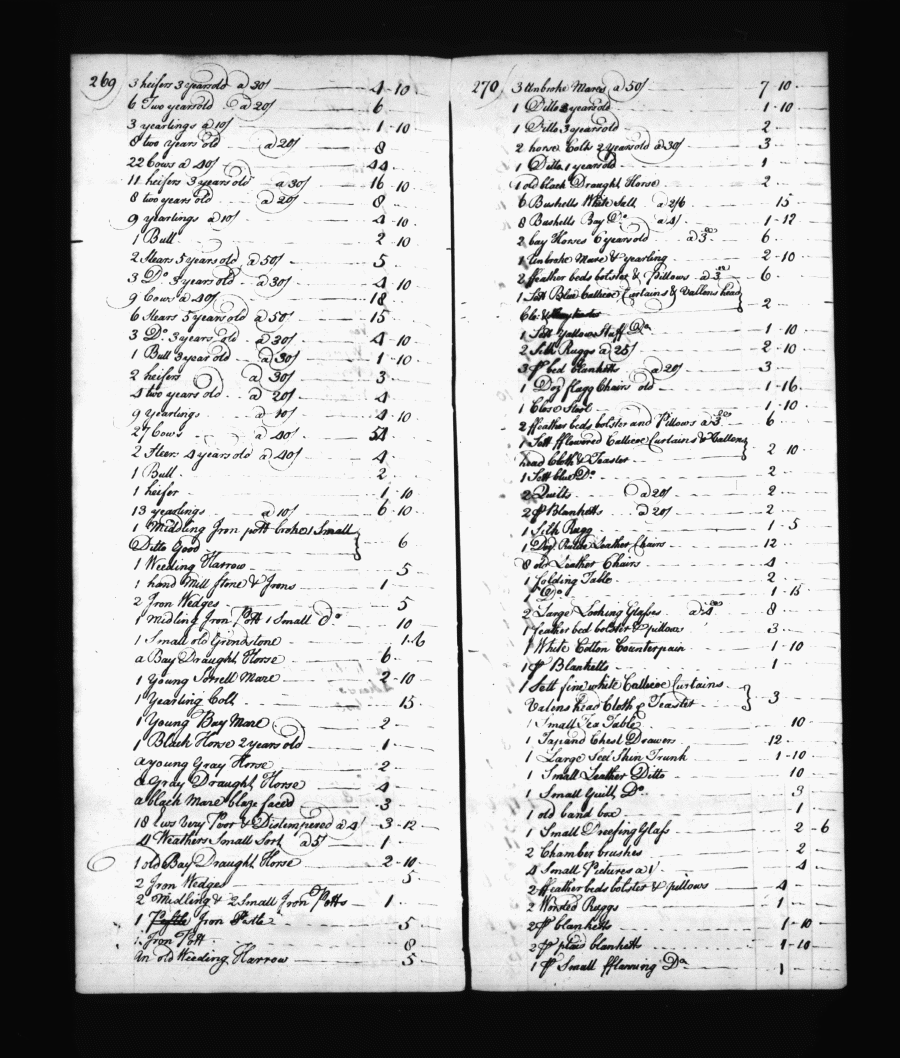 269
3 heifers 3 years old a 30/ 4 - 10
6 Two years old a 20/ 6
3 yearlings a 10/ 1 - 10
8 two years old a 20/ 8
22 Cows a 40/ 44
11 heifers 3 years old a 30/ 16 - 10
8 two years old a 20/ 8
9 yearlings a 10/ 4 - 10
1 Bull 2 - 10
2 Stears 5 years old a 50/ 5
3 Do. 3 years old a 30/ 4 - 10
9 Cows a 40/ 18
6 Stears 5 years old a 50/ 15
3 Do. 3 years old a 30/ 4 - 10
1 Bull 3 year old a 30/ 1 - 10
2 heifers a 30/ 3
4 two years old a 20/ 4
9 yearlings a 10/ 4 - 10
27 Cows a 40/ 54
2 Steers 4 years old a 40/ 4
1 Bull 2
1 heifer 1 - 10
13 yearlings a 10/ 6 - 10
1 Middling Iron pott broke 1 Small
Ditto Good 6
1 Weeding Harrow 5
1 hand Mill stone & Irons 1
2 Iron Wedges 5
1 Midling Iron Pott 1 Small Do 10
1 Small old Grindstone 1 - 6
a Bay Draught Horse 6
1 Young Sorrell Mare 2 - 10
1 Yearling Colt 15
1 Young Bay Mare 2
1 Black Horse 2 years old 1
a young Gray Horse 2
a Gray Draught Horse 4
a black Mare blaze faced 3
18 Ews very Poor & Distempered a 4/ 3 - 12
4 Weathers Small Sort a 5/ 1
1 old Bay Draught Horse 2 - 10
2 Iron Wedges 5
2 Midling & 2 Small Iron Potts 1
1 Iron 5
1 Iron Pott 8
an old Weeding Harrow 5
270
3 Unbroke Mares a 50/ 7 - 10
1 Ditto years old 1 - 10
1 Ditto 3 years old 2
2 horse Colts 2 years old a 30/ 3
1 Ditto 1 years old 1
1 old black Draught Horse 2
6 Bushells White Salt a 2/6 15
8 Bushells Bay Do a 4/ 1 - 12
2 bay Horses 6 years old a 3 6
1 Unbroke Mare & yearling 2 - 10
2 ffeather beds bolster & Pillows a 3 6
1 Sett Blue Callicoe Curtains & Vallens head
Clo: & 2
1 Sett Yallow Stuff Do 1 - 10
2 Silk Ruggs a 25/ 2 - 10
3 pr bed blanketts a 20/ 3
1 Doz flagg Chairs old 1 - 16
1 Close Stool 1 - 10
2 ffeather beds bolster and Pillows a 3 6
1 Sett fflowered Callicoe Curtains & Vallens
head Cloth & Teaster 2 10
1 Sett blue Do 2
2 Quilts a 20/ 2
2 pr Blanketts a 20/ 2
1 Silk Rugg 1 - 5
1 Doz Leather Chairs 12
8 old Leather Chairs 4
1 folding Table 2
1 Do 1 - 15
2 Large Looking Glasses a 4 8
1 feather bed bolster & pillow 3
1 White Cotton Counterpain 1 - 10
1 pr Blanketts 1
1 Sett fine white Callicoe Curtains
Valens head Cloth & Teaster 3
1 Small Tea Table 10
1 Japand Chest Drawers 12
1 Large Seal Skin Trunk 1 - 10
1 Small Leather Ditto 10
1 Small Do 3
1 old band box 1
1 Small Dressing Glass 2 - 6
2 Chamber brushes 2
4 Small Pictures a 1/ 4
2 ffeather beds bolster & pillows 4
2 Worsted Ruggs 1
2 pr blanketts 1 - 10
2 pr plais blanketts 1 - 10
1 pr Small fflanning Do 1